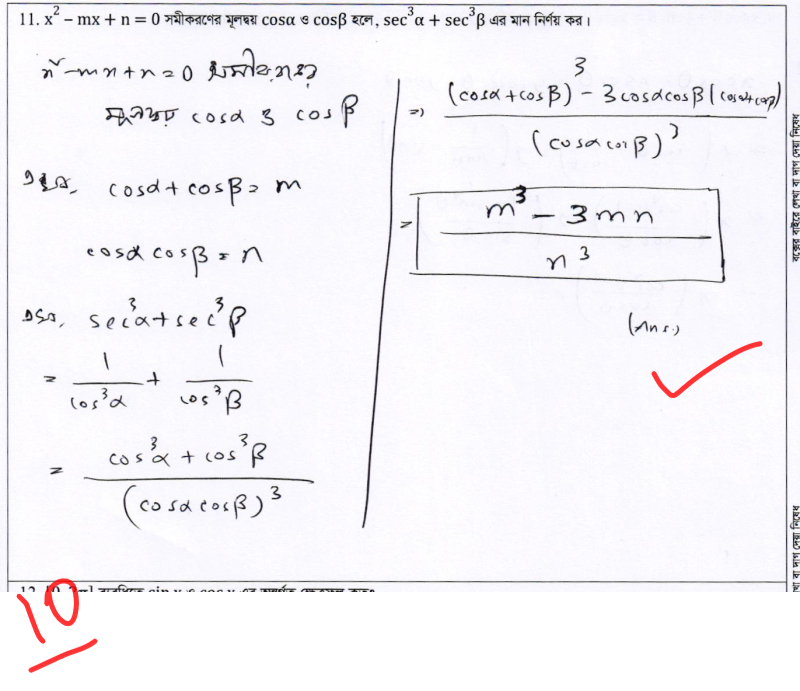 11. x² − mx + n = 0 সমীকরণের মূলদ্বয় cosα ও cosβ হলে, sec³α + sec³β এর মান নির্ণয় কর।
x² − mx + n = 0 সমীকরণের
মূলদ্বয় cosα ও cosβ
cosα + cosβ = m
cosα cosβ = n
sec³α + sec³β
= 1/cos³α + 1/cos³β
= (cos³α + cos³β)/(cosα cosβ)³
⇒ ((cosα + cosβ)³ − 3cosαcosβ(cosα+cosβ))/(cosα cosβ)³
= (m³ − 3mn)/n³
(Ans.)
10
বক্সের বাইরে লেখা বা দাগ দেয়া নিষেধ
খা বা দাগ দেয়া নিষেধ